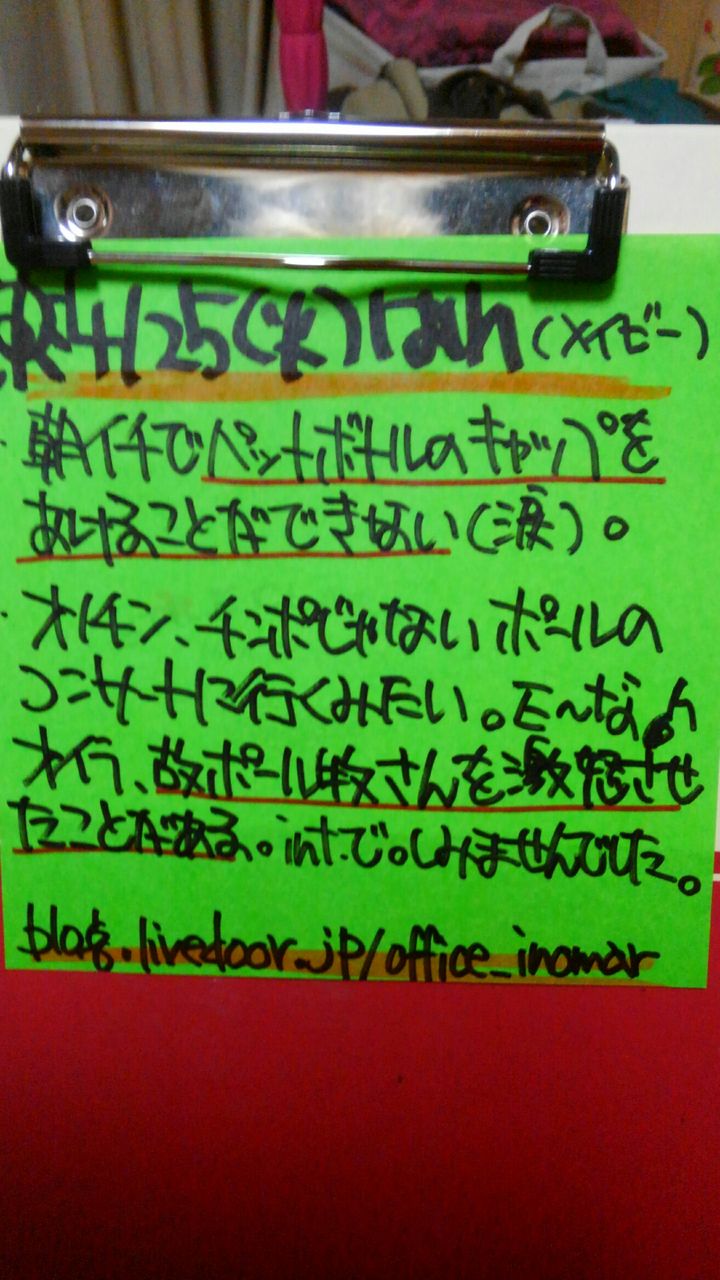 4/25(火)はれ(メイビー)
・朝イチでペットボトルのキャップを
あけることができない(涙)。
・オノチン、チンポじゃないポールの
コンサートに行くみたい。E〜な♪
オイラ、故ポール牧さんを激怒させ
たことがある。int.で。しみませんでした。
blog.livedoor.jp/office_inomar